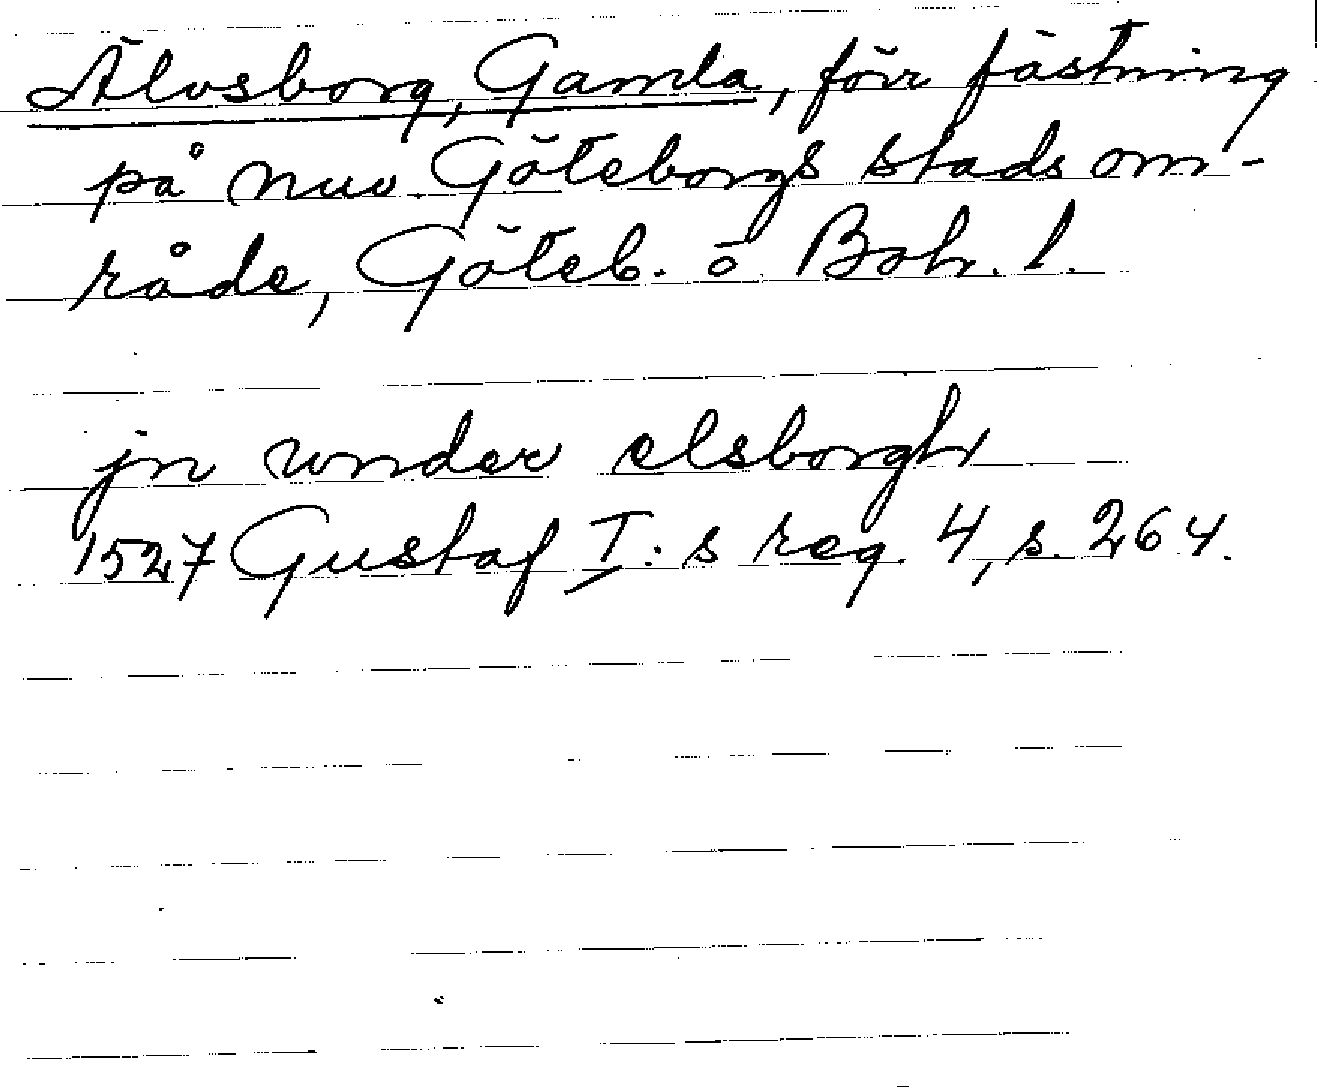 Älvsborg, Gamla, förr fästning
på nuv. Göteborgs stads om-
råde, Göteb. o Boh. l.
jn vnder elsborgh
1527 Gustaf I:s reg. 4, s. 264.